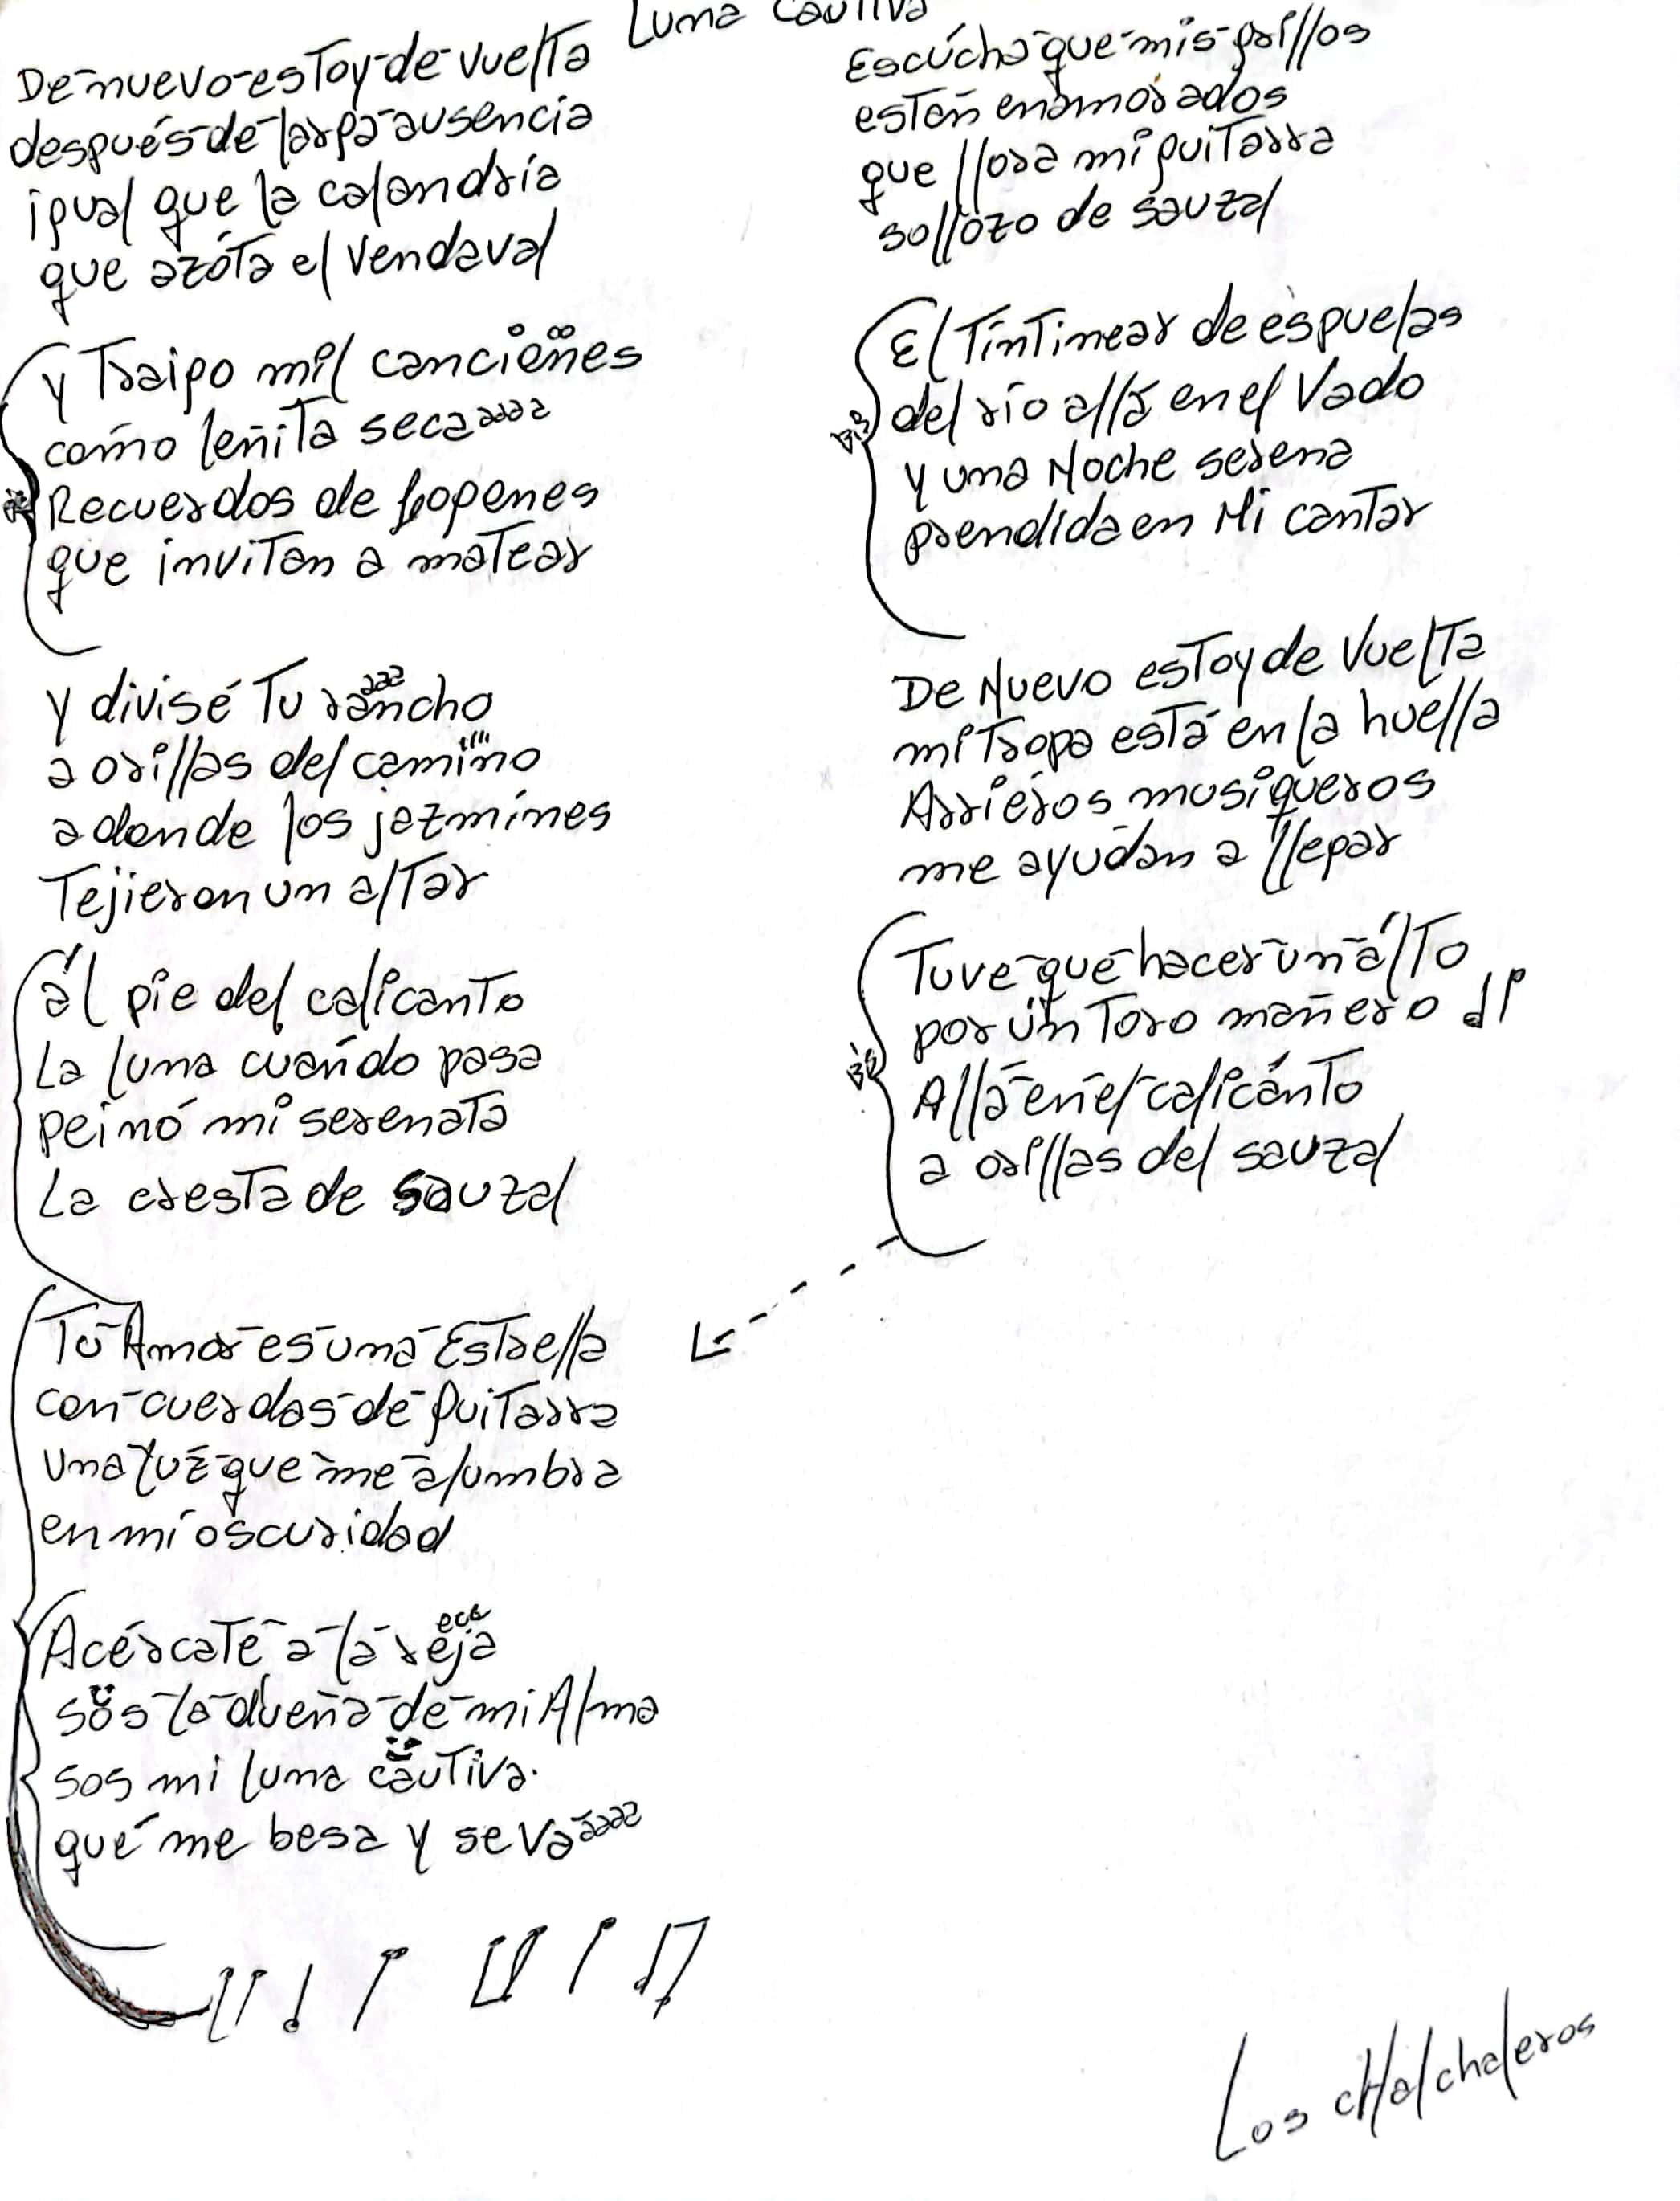 Luna Cautiva
De nuevo estoy de vuelta
después de larga ausencia
igual que la calandria
que azóta el vendaval
y traigo mil cancioooones
como leñita secaaaaa
Recuerdos de fogones
que invitan a matear
y divisé tu raaaancho
a orillas del camiiiino
adonde los jazmines
Tejieron un altar
ál pie del calicanto
La luna cuando pasa
peinó mi serenata
La cresta de sauzal
Tu Amor es una Estrella
con cuerdas de guitarra
una luz que me alumbra
en mi oscuridad
Acércate a la reeeeja
sos la dueña de mi Alma
sos mi luna cautiva.
que me besa y se vaaaaa
Escúcha que mis grillos
están enamorados
que llora mi guitarra
sollozo de sauzal
El Tintinear de espuelas
del río allá en el Vado
Bis
y una Noche serena
prendida en Mi cantar
De Nuevo estoy de Vuelta
mi Tropa está en la huella
Arrieros musiqueros
me ayudan a llegar
Tuve que hacer un álTo
por un Toro mañero
Bis
Allá en el calicánto
a orillas del sauzal
Los cHalchaleros